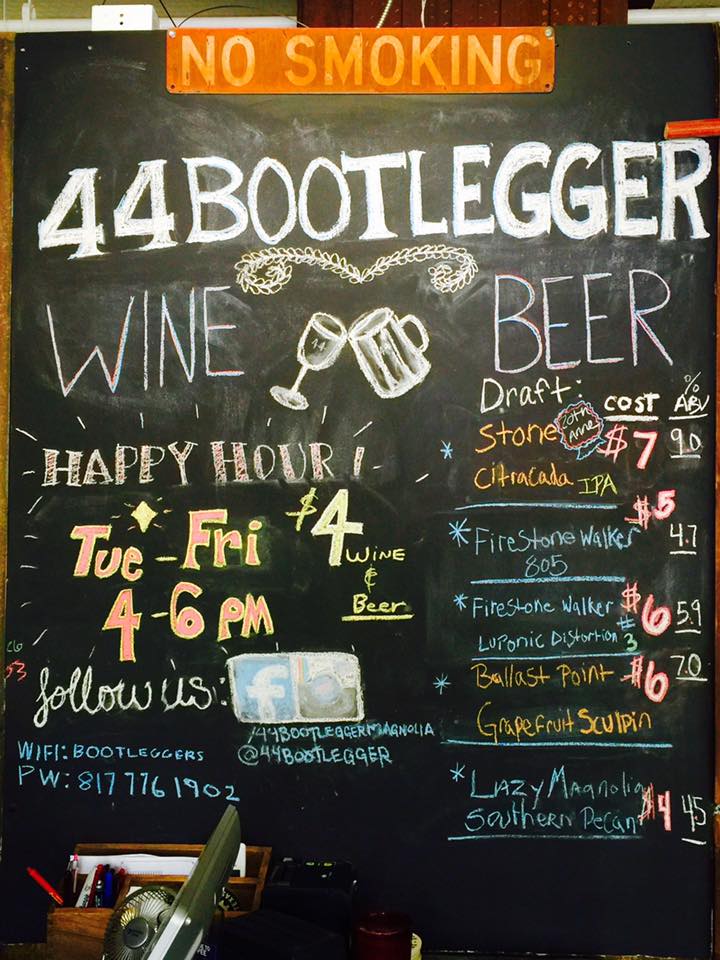 NO SMOKING
44BOOTLEGGER
WINE
BEER
HAPPY HOUR!
Tue-Fri
4-6 PM
$4
WINE
&
Beer
follow us:
f
/44BOOTLEGGERMAGNOLIA
@44BOOTLEGGER
WIFI: BOOTLEGGERS
PW: 817 776 1902
Draft: COST % ABV
* Stone 20th Anne $7 9.0
Citracada IPA
* FireStone Walker $5 4.7
805
* Firestone Walker $6 5.9
Luponic Distortion #3
* Ballast Point $6 7.0
Grapefruit Sculpin
* Lazy Magnolia
Southern Pecan $4 4.5